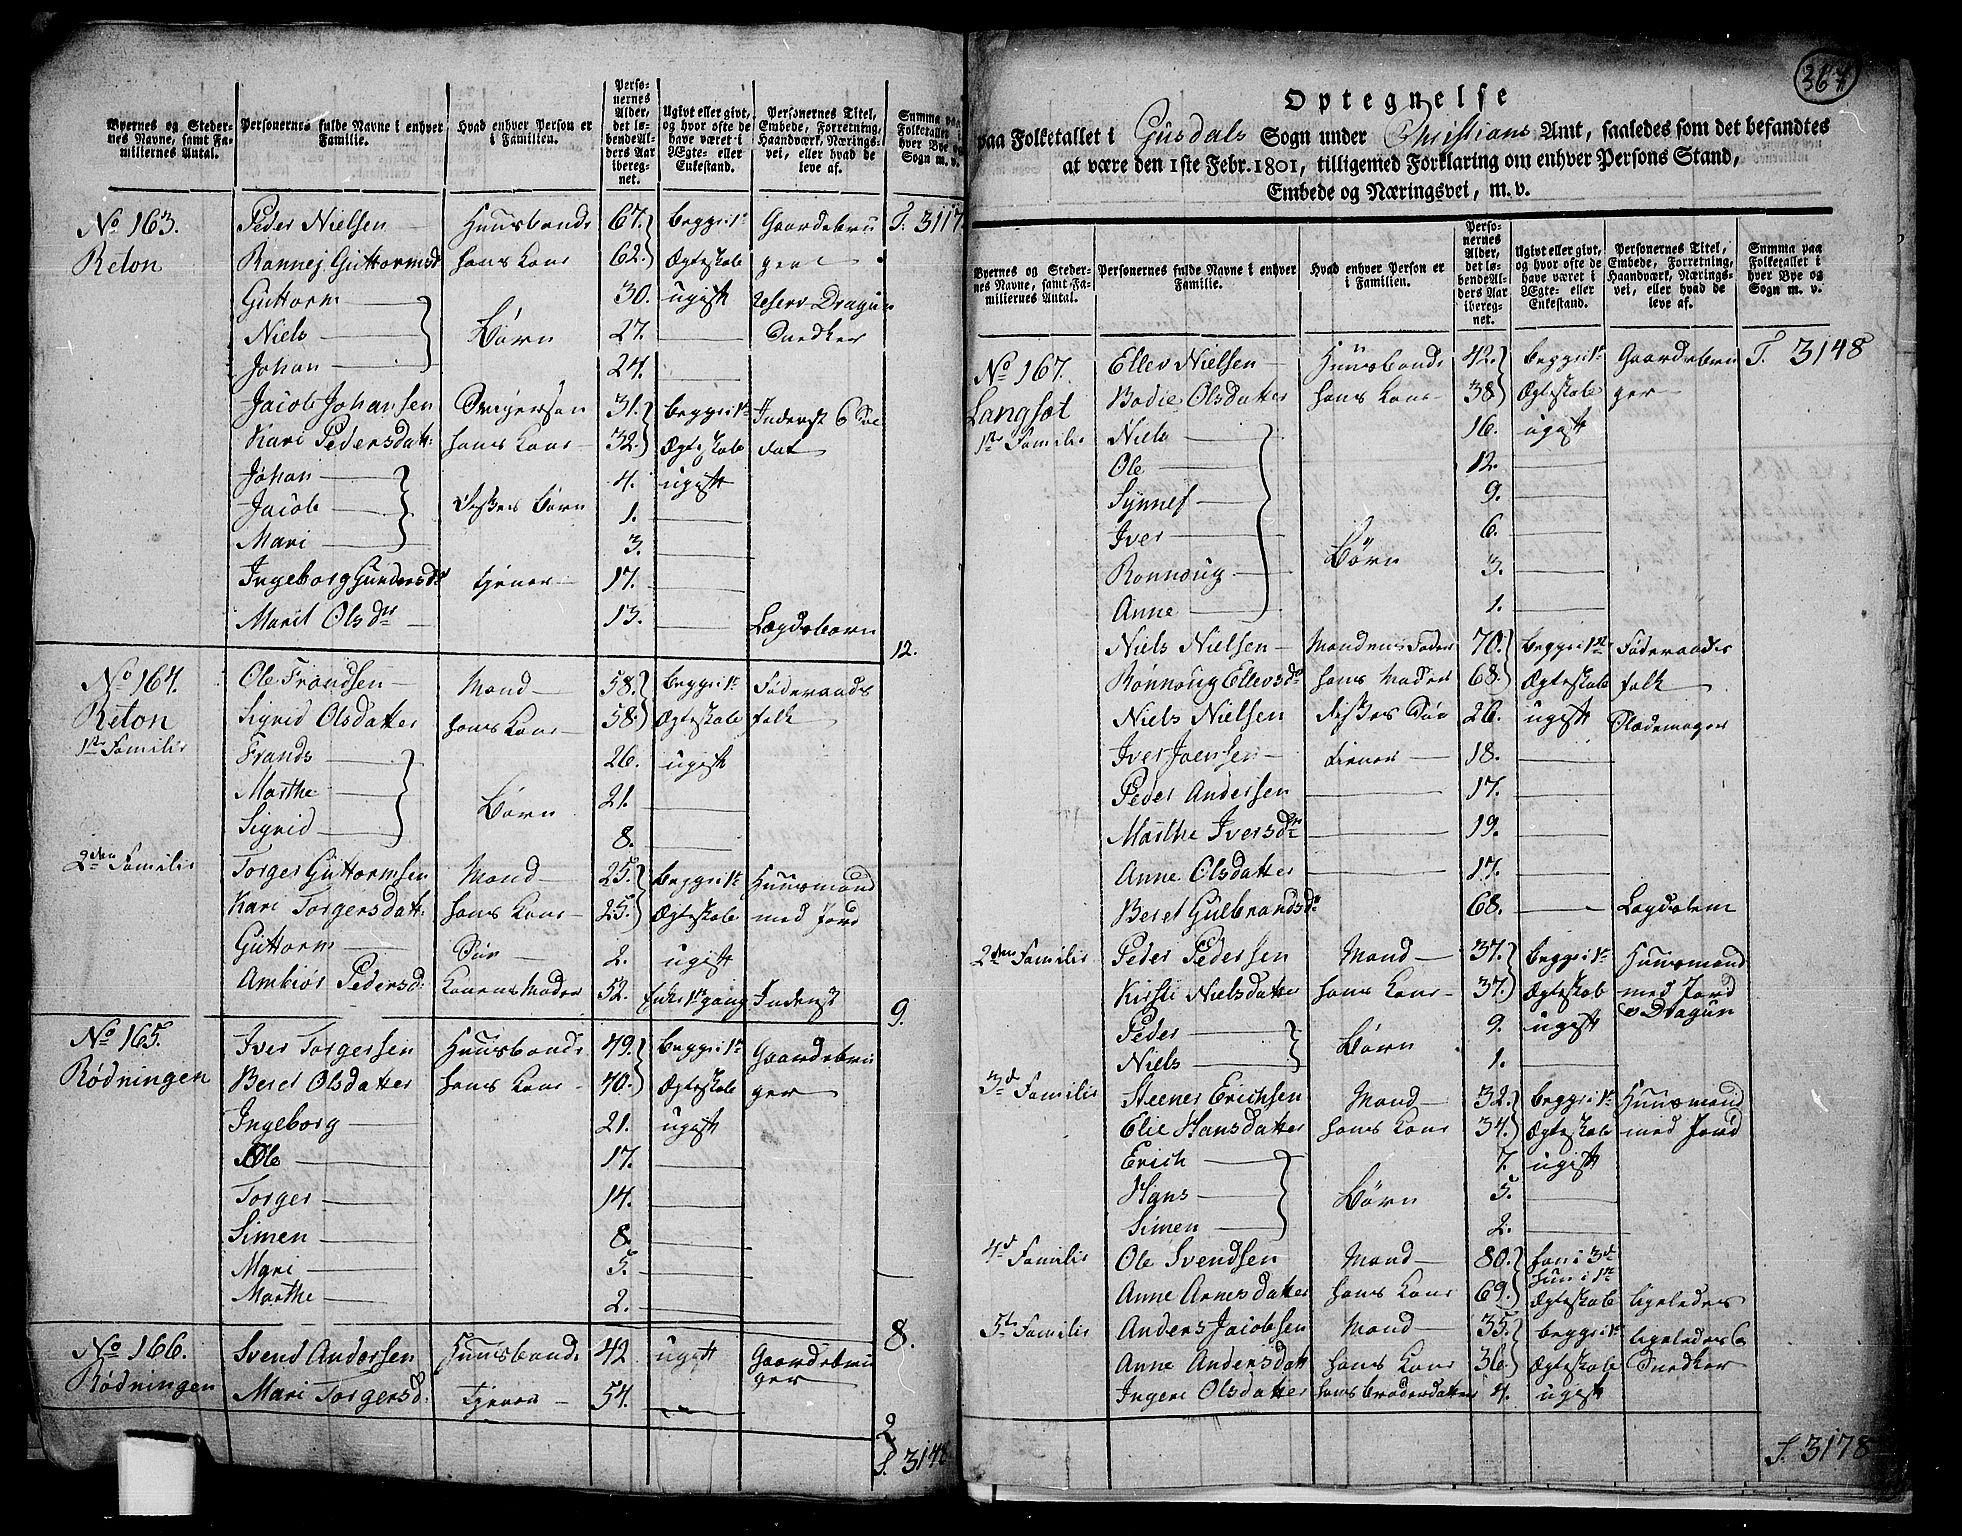 Byernes og Stedernes Navne, samt Familiernes Antal.
Personernes fulde Navne i enhver Familie.
Hvad enhver Person er i Familien.
Personernes Alder, det løbende Alders Aar iberegnet.
Ugivt eller givt, og hvor ofte de have været i Ægte- eller Enkestand.
Personernes Titel, Embede, Forretning, Haandværk, Næringsvei, eller hvad de leve af.
Summa paa Folketallet i hver Bye og Sogn m. v.
No 163. Peder Nielsen Huusbonde 67. begge i 1te Gaardebru T. 3117
Reton Rannej Guttormsd hans Kone 62. Ægteskab ger
Guttorm 30. ugift reserv Dragun
Niels Børn 27. Snedker
Johan 24.
Jacob Johansen Svigersøn 31. begge i 1te Inderst & Sol
Kari Pedersdatt: hans Kone 32. Ægteskab dat
Johan 4. ugift
Jacob Disses Børn 1.
Mari 3.
Ingeborg Gundersdr tjener 17.
Marit Olsdr 13. Lægdsbarn 12.
No 164. Ole Frandsen Mand 58. begge i 1te Føderaads
Reton Sigrid Olsdatter hans Kone 58. Ægteskab folk
1ste Familie Frands 26. ugift
Marthe Børn 21.
Sigrid 8.
2den Familie Torger Guttormsen Mand 25. begge i 1te Huusmand
Kari Torgersdatt: hans Kone 25. Ægteskab med Jord
Guttorm Søn 2. ugift
Ambiør Pedersd: Konens Moder 52. Enke 1te gang Inderst 9.
No 165. Iver Torgersen Huusbonde 49. begge i 1te Gaardebru
Rødningen Beret Olsdatter hans Kone 40. Ægteskab ger
Ingeborg 21. ugift
Ole 17.
Torger 14.
Simen 8.
Mari 5.
Marthe 2.
8.
No 166. Svend Andersen Huusbonde 42 ugift Gaardebru
Rødningen Mari Torgersd: tjener 54. ger
2
S. 3148
367
Optegnelse
paa Folketallet i Gusdals Sogn under Christians Amt, saaledes som det befandtes
at være den 1ste Febr. 1801, tilligemed Forklaring om enhver Persons Stand,
Embede og Næringsvei, m. v.
Byernes og Stedernes Navne, samt Familiernes Antal.
Personernes fulde Navne i enhver Familie.
Hvad enhver Person er i Familien.
Personernes Alder, det løbende Alders Aar iberegnet.
Ugivt eller givt, og hvor ofte de have været i Ægte- eller Enkestand.
Personernes Titel, Embede, Forretning, Haandværk, Næringsvei, eller hvad de leve af.
Summa paa Folketallet i hver Bye og Sogn m. v.
No 167. Ellev Nielsen Huusbonde 42. begge i 1te Gaardebru T. 3148
Langsæt Bodie Olsdatter hans Kone 38 Ægteskab ger
1te Familie Niels 16. ugift
Ole 12.
Synnef 9.
Iver Børn 6.
Ronnoug 3.
Anne 1.
Niels Nielsen Mandens Fader 70. begge i 1te Føderaads
Rønnoug Ellevsdr hans Moder 68. Ægteskab folk
Niels Nielsen disses Søn 26. ugift Slædemager
Iver Joensen tiener 18.
Peder Andersen 17.
Marthe Iversdr 19.
Anne Olsdatter 17.
Beret Gulbrandsdr 68. Lægdslem
2den Familie Peder Pedersen Mand 37. begge i 1te Huusmand
Kirsti Nielsdatter hans Kone 37. Ægteskab med Jord
Peder Børn 9. ugift & Dragun
Niels 1.
3d Familie Steener Erichsen Mand 32. begge i 1te Huusmand
Elie Hansdatter hans Kone 34. Ægteskab med Jord
Erich 7. ugift
Hans Børn 5.
Simen 2.
4d Familie Ole Svendsen Mand 80. han i 3d hun i 1te
Anne Arnesdatter hans Kone 69. Ægteskab ligeledes
5te Familie Anders Jacobsen Mand 35. begge i 1te ligeledes &
Anne Andersdatt hans Kone 36. Ægteskab Snedker
Ingeri Olsdatter hans broderdatter 4. ugift
S. 3178